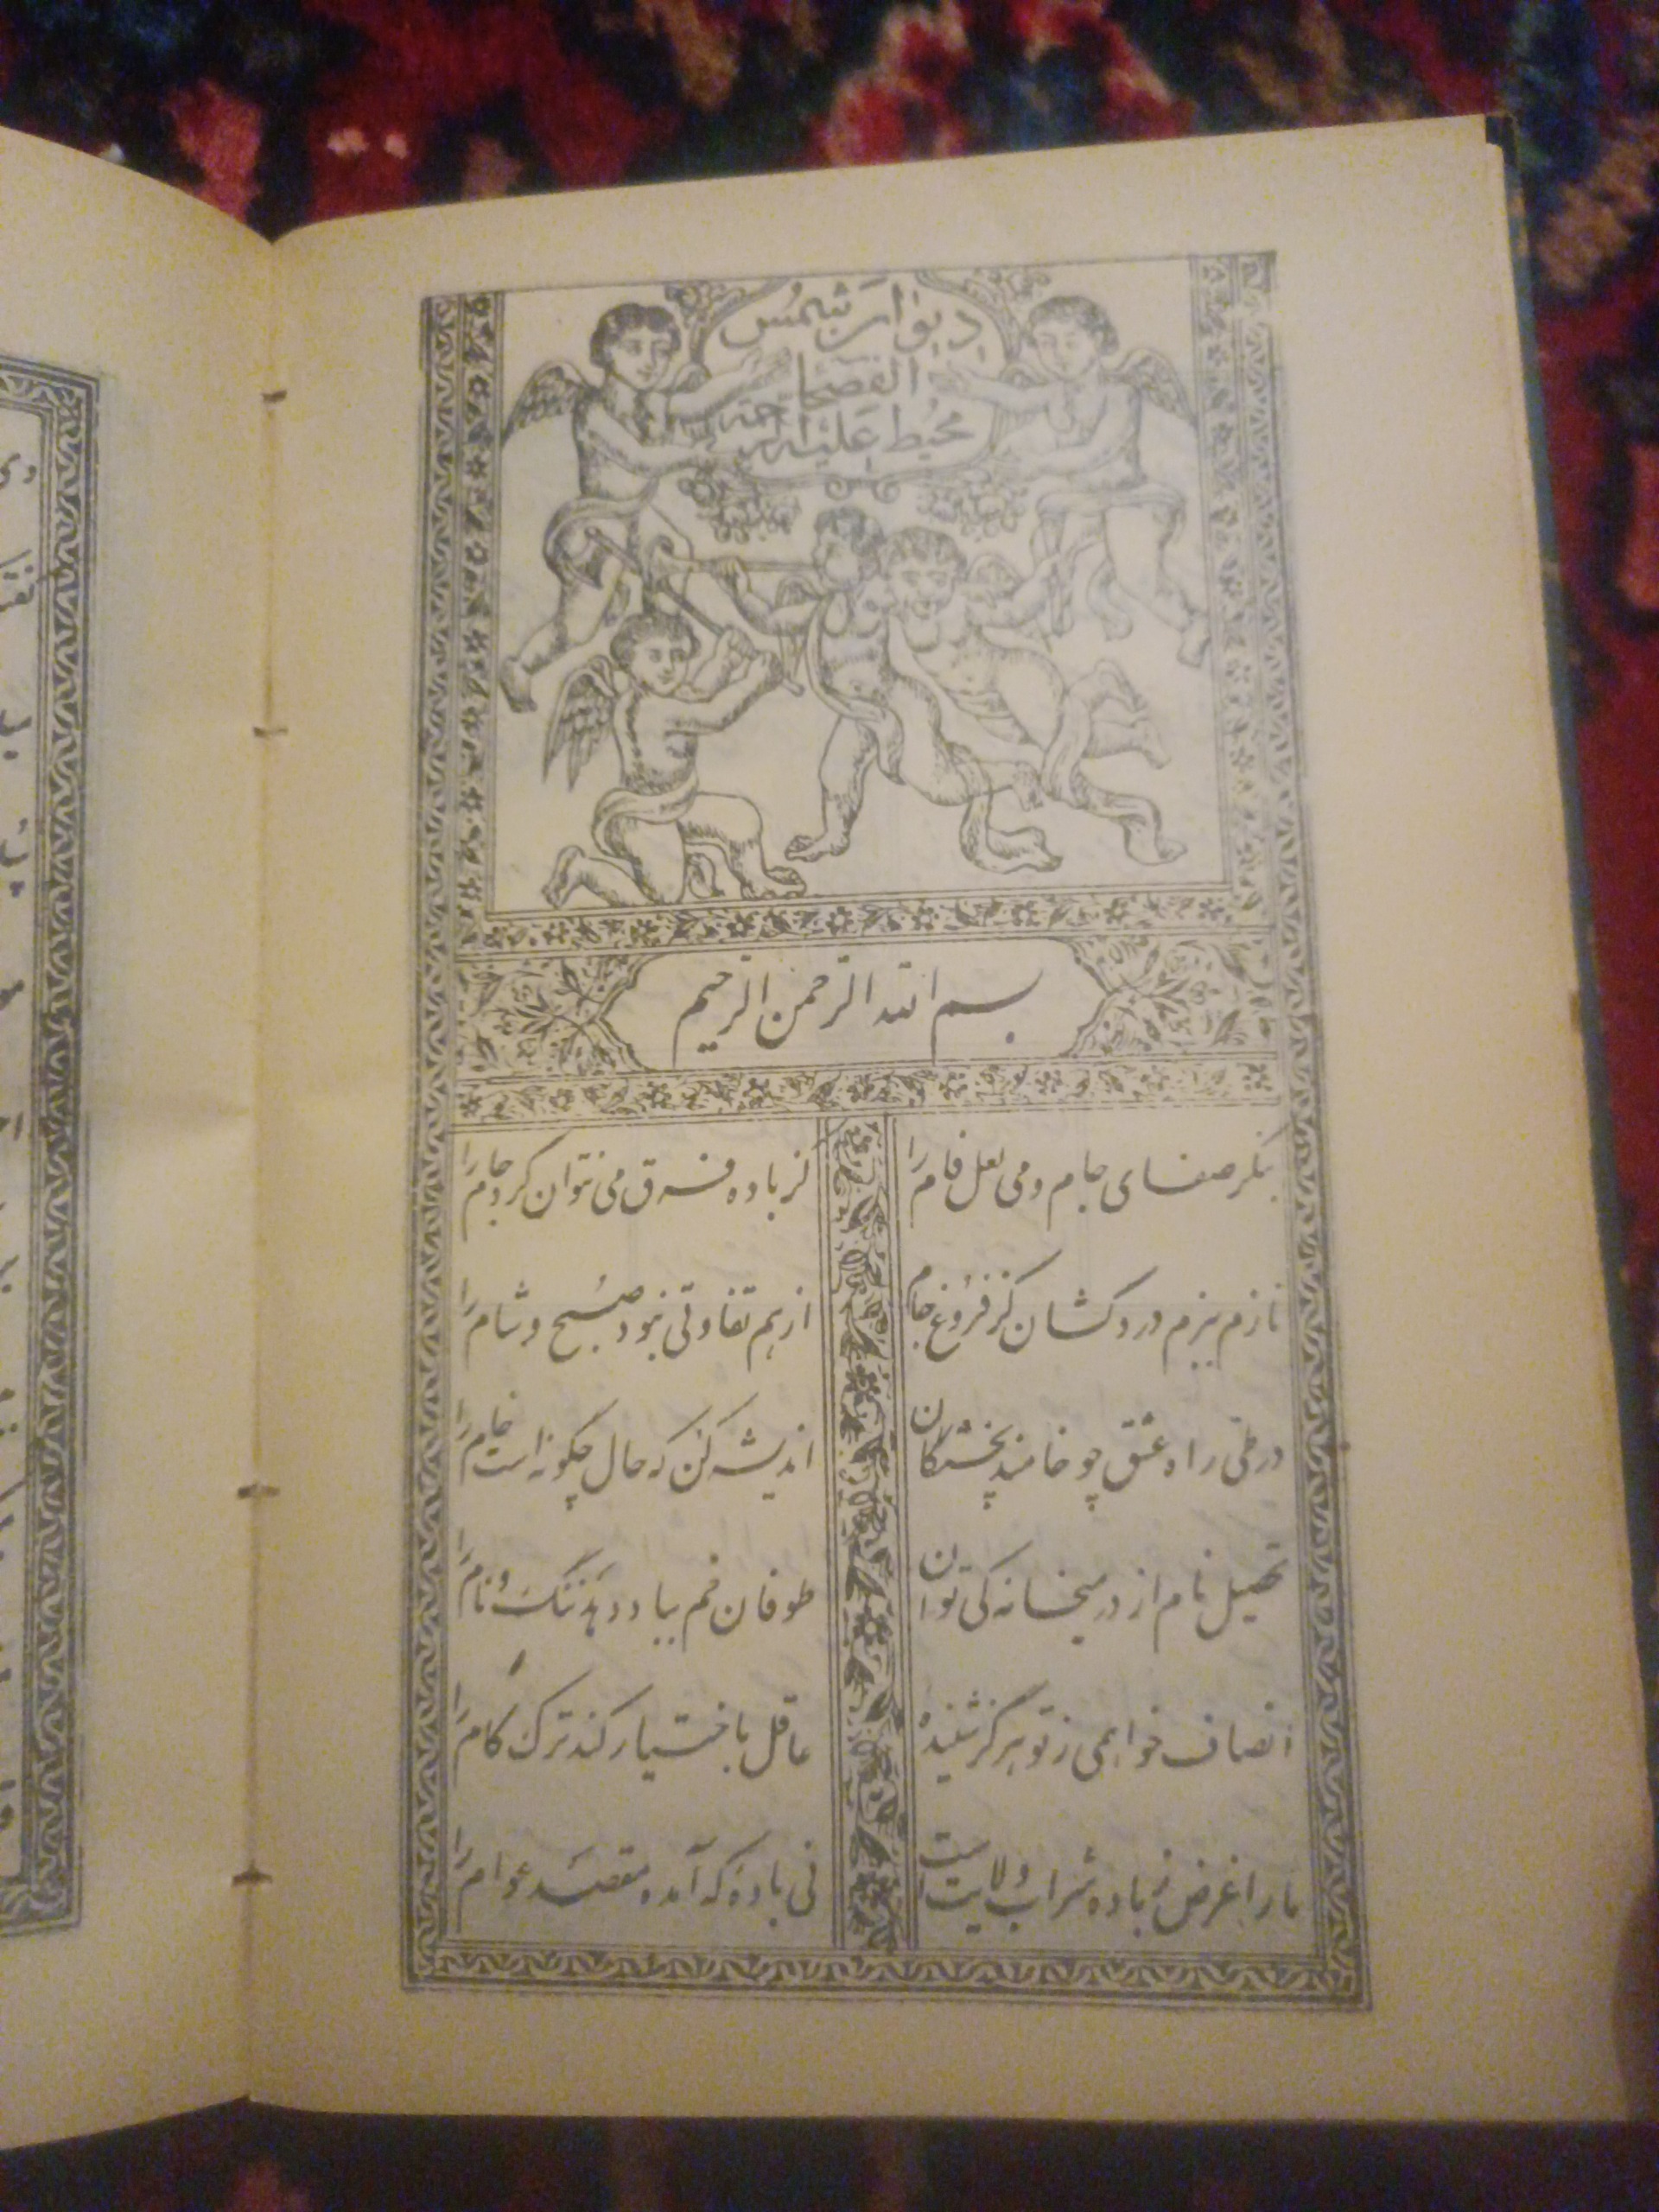 دیوان شمس
الفصحا
محیط علیه الرحمه
بسم الله الرحمن الرحیم
بنگر صفای جام و می لعل فام را
کز باده فرق می نتوان کرد جام را
نازم ببزم دردکشان کز فروغ جام
از هم تفاوتی نبود صبح و شام را
در طی راه عشق چو خامند پختگان
اندیشه کن که حال چگونه است خام را
تحصیل نام از در میخانه کی توان
طوفان خم بباد دهد ننگ و نام را
انصاف خواهمی ز تو هرگز شنیدهٔ
عاقل باختیار کند ترک کام را
ما را غرض ز باده شراب ولایت است
نی بادهٔ که آمده مقصد عوام را